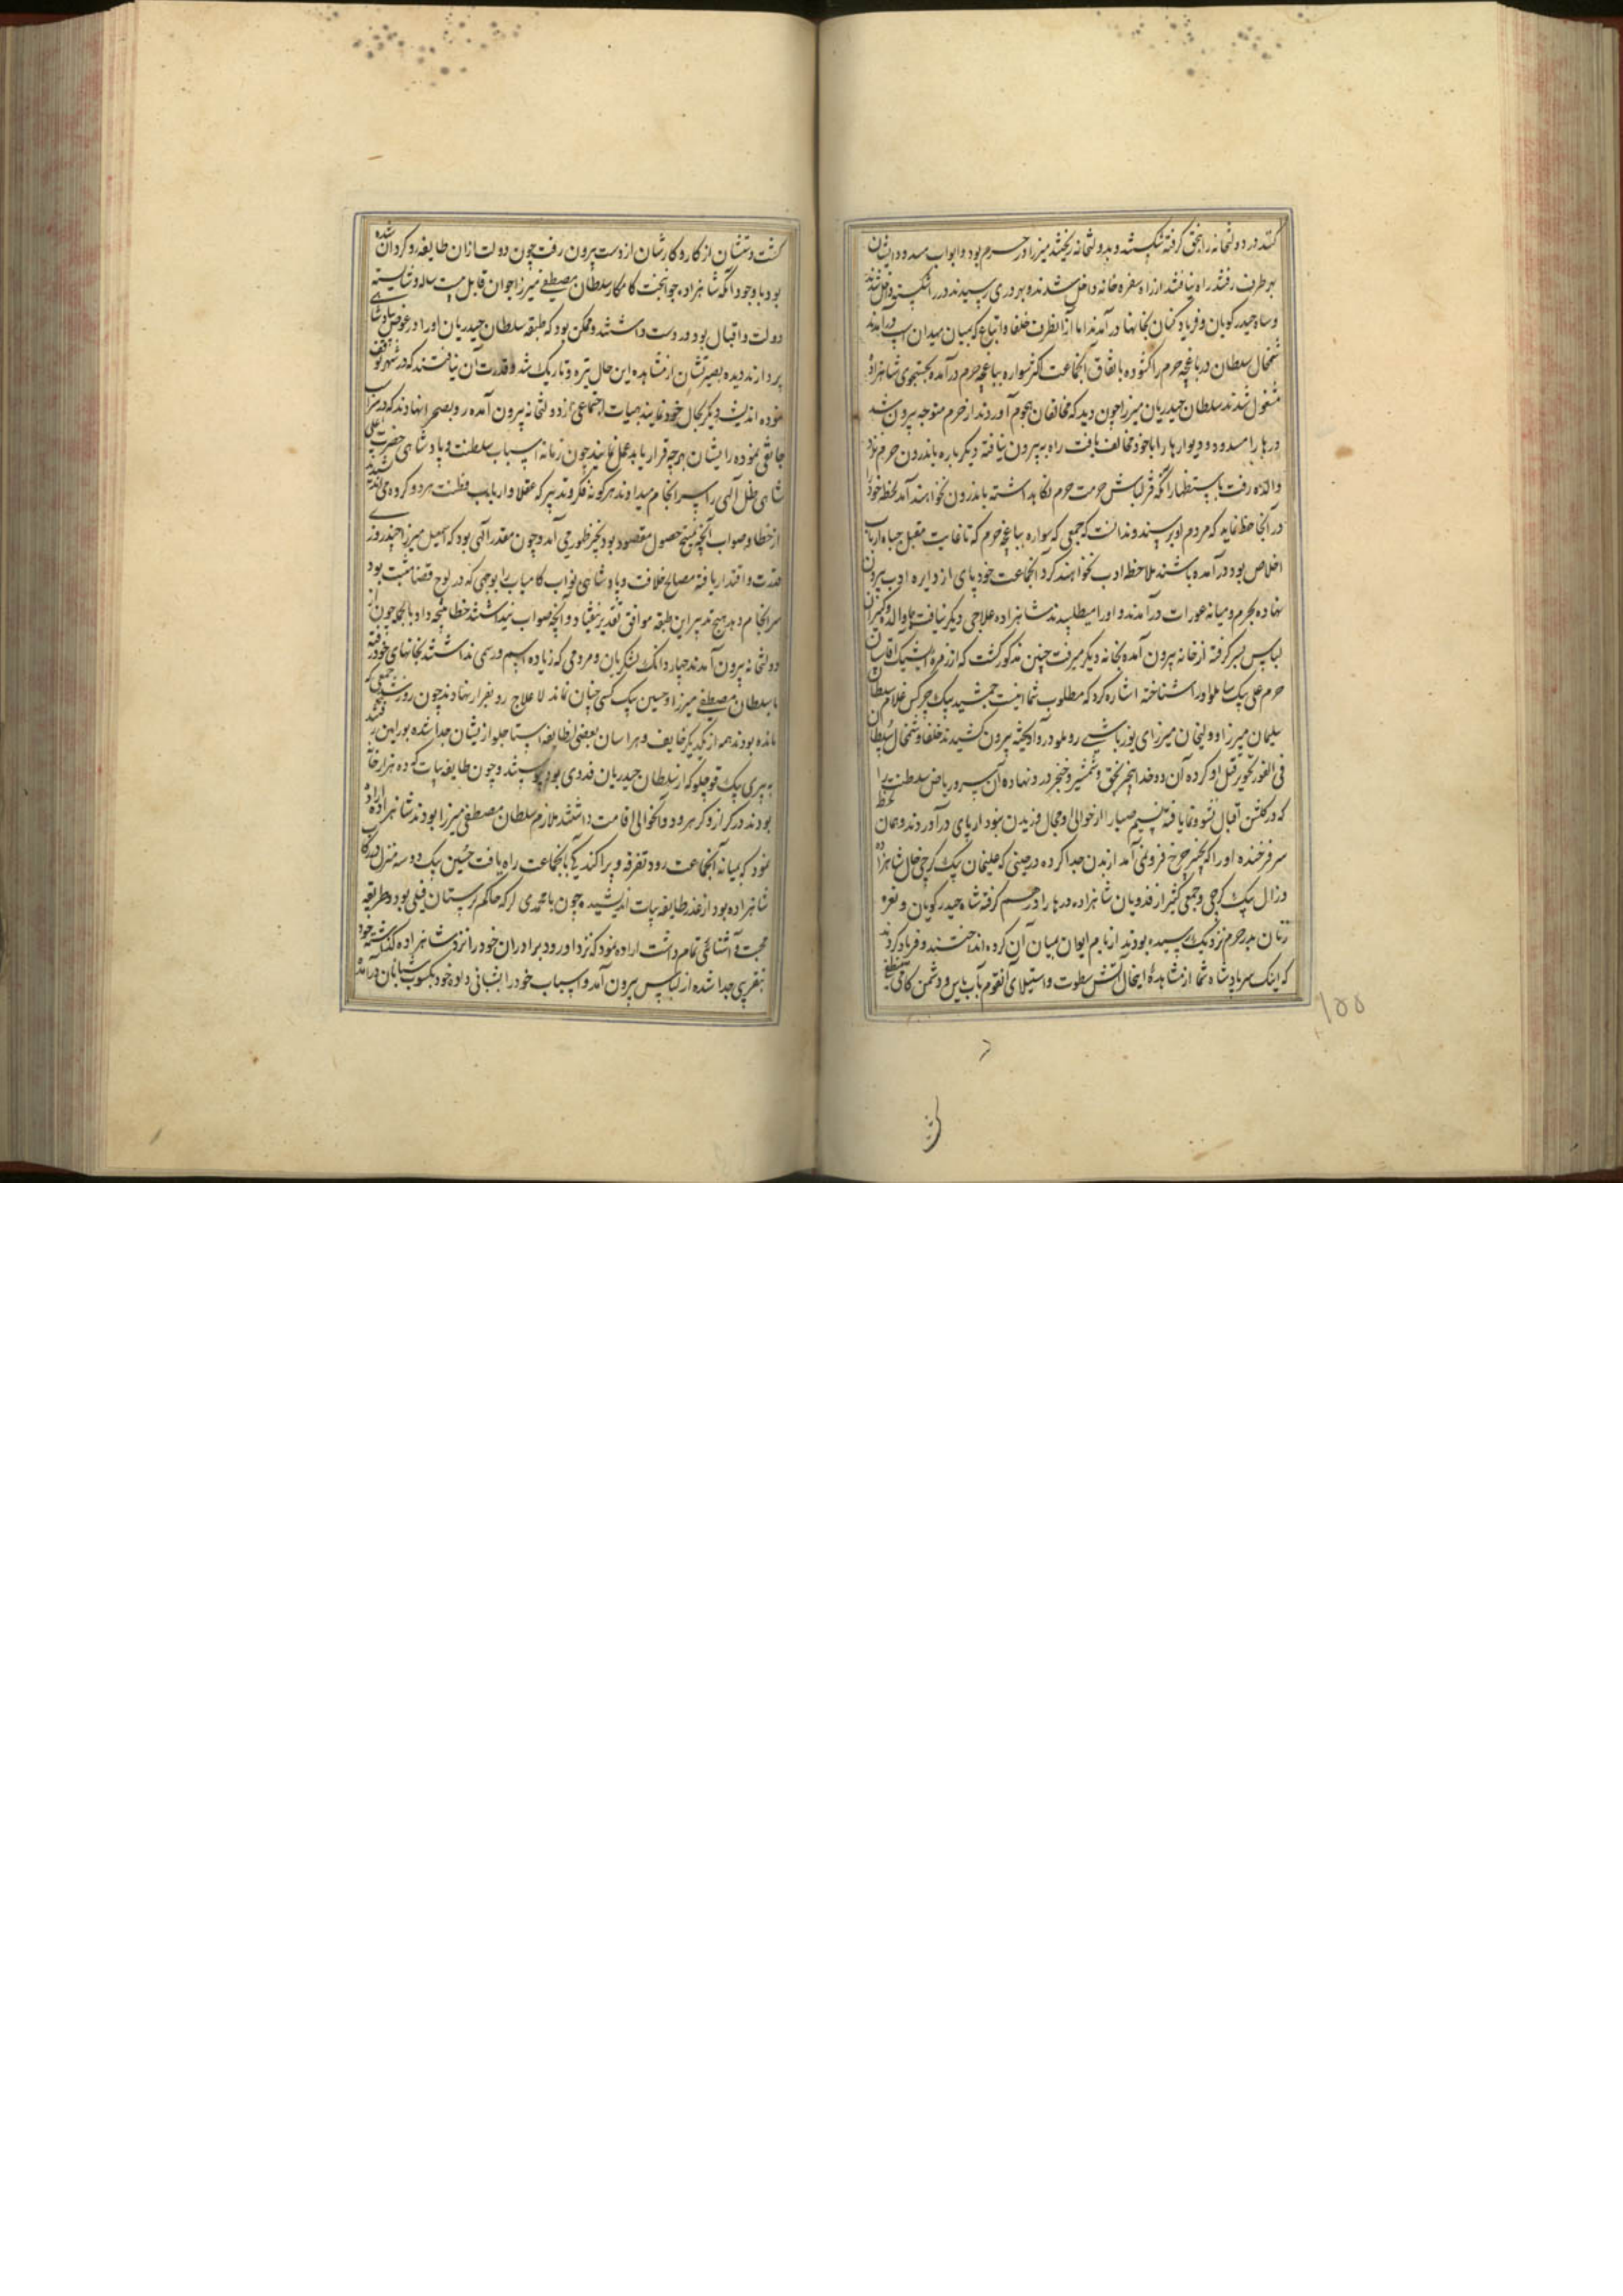 کنند در دولتخانه را بخق گرفته شکستند و بدولتخانه ریختند میرزا در حرم بود و ابواب مسدود ایشان
بهر طرف رفتند راه نیافتند از راه سفره خانه داخل شدند و بهر دری رسیدند در را شکسته داخل شدند
و شاه حیدر گویان و فریاد کنان بخانها در آمدند اما از انطرف خلفا و اتباع که بمیان میدان اسپ در آمدند
شمخال سلطان در باغچه حرم را گشوده باتفاق آنجماعت اکثر سواره بباغچه حرم در آمده بجستجوی شاهزاده
مشغول شدند سلطان حیدر میرزا چون دید که مخالفان هجوم آوردند از حرم متوجه بیرون شد
درها را مسدود و دیوارها را با خود مخالف یافت راه به بیرون نیافته دیگر باره باندرون حرم نزد
والده رفت باستظهار آنکه قزلباش حرمت حرم نگاه داشته باندرون نخواهند آمد لحظه خود را
در آنجا حفظ نماید که مردم او برسند و ندانست که جمعی که سواره بباغچه حرم که تا غایت مقبل جباه ارباب
اخلاص بود در آمده باشند ملاحظه ادب نخواهند کرد آنجماعت خود پای از دایره ادب بیرون
نهاده بحرم و میانه عورات در آمدند و او را میطلبیدند شاهزاده علاجی دیگر نیافت با والده و کنیزان
لباس بسر گرفته از خانه بیرون آمده بخانه دیگر میرفت چنین مذکور گشت که از زمره ایشیک آقاسیان
حرم علی بیک شاملو او را شناخته اشاره کرد که مطلوب شما اینست جمشید بیک چرکس غلام سلطان
سلیمان میرزا و ولیخان میرزای یوزباشی روملو در او آویخته بیرون کشیدند خلفا و شمخال سلطان
فی الفور تجویز قتل او کرده آن دو خدا بیخبر بخق و شمشیر و خنجر در و نهاده آن سرو ریاض سلطنت را
که در گلشن اقبال نشو و نما یافته نسیم صبا را از حوالی او مجال وزیدن نبود از پای در آوردند و همان لحظه
سر فرخنده او را که بخنجر چرخ فرو نمی آمد از بدن جدا کرده در حینی که علیخان بیک گرجی خال شاهزاده
و زال بیک گرجی و جمعی کثیر از فدویان شاهزاده درها را در هم گرفته شاه حیدر گویان و نعره
زنان بدر حرم نزدیک رسیده بودند از بام ایوان بمیان آن گروه انداختند و فریاد کردند
که اینک سر پادشاه شما از مشاهدهٔ اینحال آتش سطوت و استیلای آنقوم بآب یاس و دشمن کامی منطفی
۱۵۵
گشت دستشان از کار و کارشان از دست بیرون رفت چون دولت از ان طایفه رو گردان شده
بود با وجود آنکه شاهزاده جوانبخت کامکار سلطان مصطفی میرزا جوان قابل بیست ساله و شایسته
دولت و اقبال بود در دست داشتند و ممکن بود که طبقه سلطان حیدریان او را در عوض بپادشاهی
بردارند دیده بصیرتشان از مشاهده این حال تیره و تاریک شد و قدرت آن نیافتند که در شهر توقف
نموده اندیشه دیگر بحال خود نمایند بهیات اجتماعی از دولتخانه بیرون آمده رو بصحرا نهادند که در سراب
جانقی نموده رایشان بهرچه قرار یابد عمل نمایند چون زمانه اسباب سلطنت و پادشاهی حضرت اعلی
شاهی ظل آلهی را سرانجام میداد هر گونه فکر و تدبیر که عقلا و ارباب فطنت هر دو گروه می اندیشیدند
از خطا و صواب آنچه منتج حصول مقصود بود بحیز ظهور می آمد و چون مقدر آلهی بود که اسمعیل میرزا چند روزی
قدرت و اقتدار یافته مصالح خلافت و پادشاهی نواب کامیاب را بوجهی که در لوح قضا مثبت بود
سرانجام دهد هیچ تدبیر این طبقه موافق تقدیر نیفتاد و آنچه صواب میپنداشتند خطا نتیجه داد بالجمله چون از
دولتخانه بیرون آمدند چهار دانک لشکریان و مردمی که زیاده اسم و رسمی نداشتند بخانهای خود رفته
با سلطان مصطفی میرزا و حسین بیک کسی چنان نماند لا علاج رو بفرار نهادند چون روز شد جمعی که
مانده بودند همه از یکدیگر خایف و هراسان بعضی از طایفه استاجلو از ایشان جدا شده براه رفتند
به پیری بیک قوچلو که از سلطان حیدریان فدوی بود پیوستند و چون طایفه بیات که ده هزار خانه
بودند در کزاز و کرهرود و آنحوالی اقامت داشتند ملازم سلطان مصطفی میرزا بودند شاهزاده اراده
نمود که بمیانه آنجماعت رود تفرقه و پراکندگی بآنجماعت راه یافت حسین بیک دو سه منزل در رکاب
شاهزاده بود از غدر طایفه بیات اندیشیده چون با محمدی لر که حاکم لرستان فیلی بود طریقه
محبت و آشنائی تمام داشت اراده نمود که نزد او رود برادران خود را نزد شاهزاده گذاشته خود
بتقریبی جدا شده از لباس بیرون آمد و اسباب خود را بشبانی داده خود بکسوت شبانان در آمده